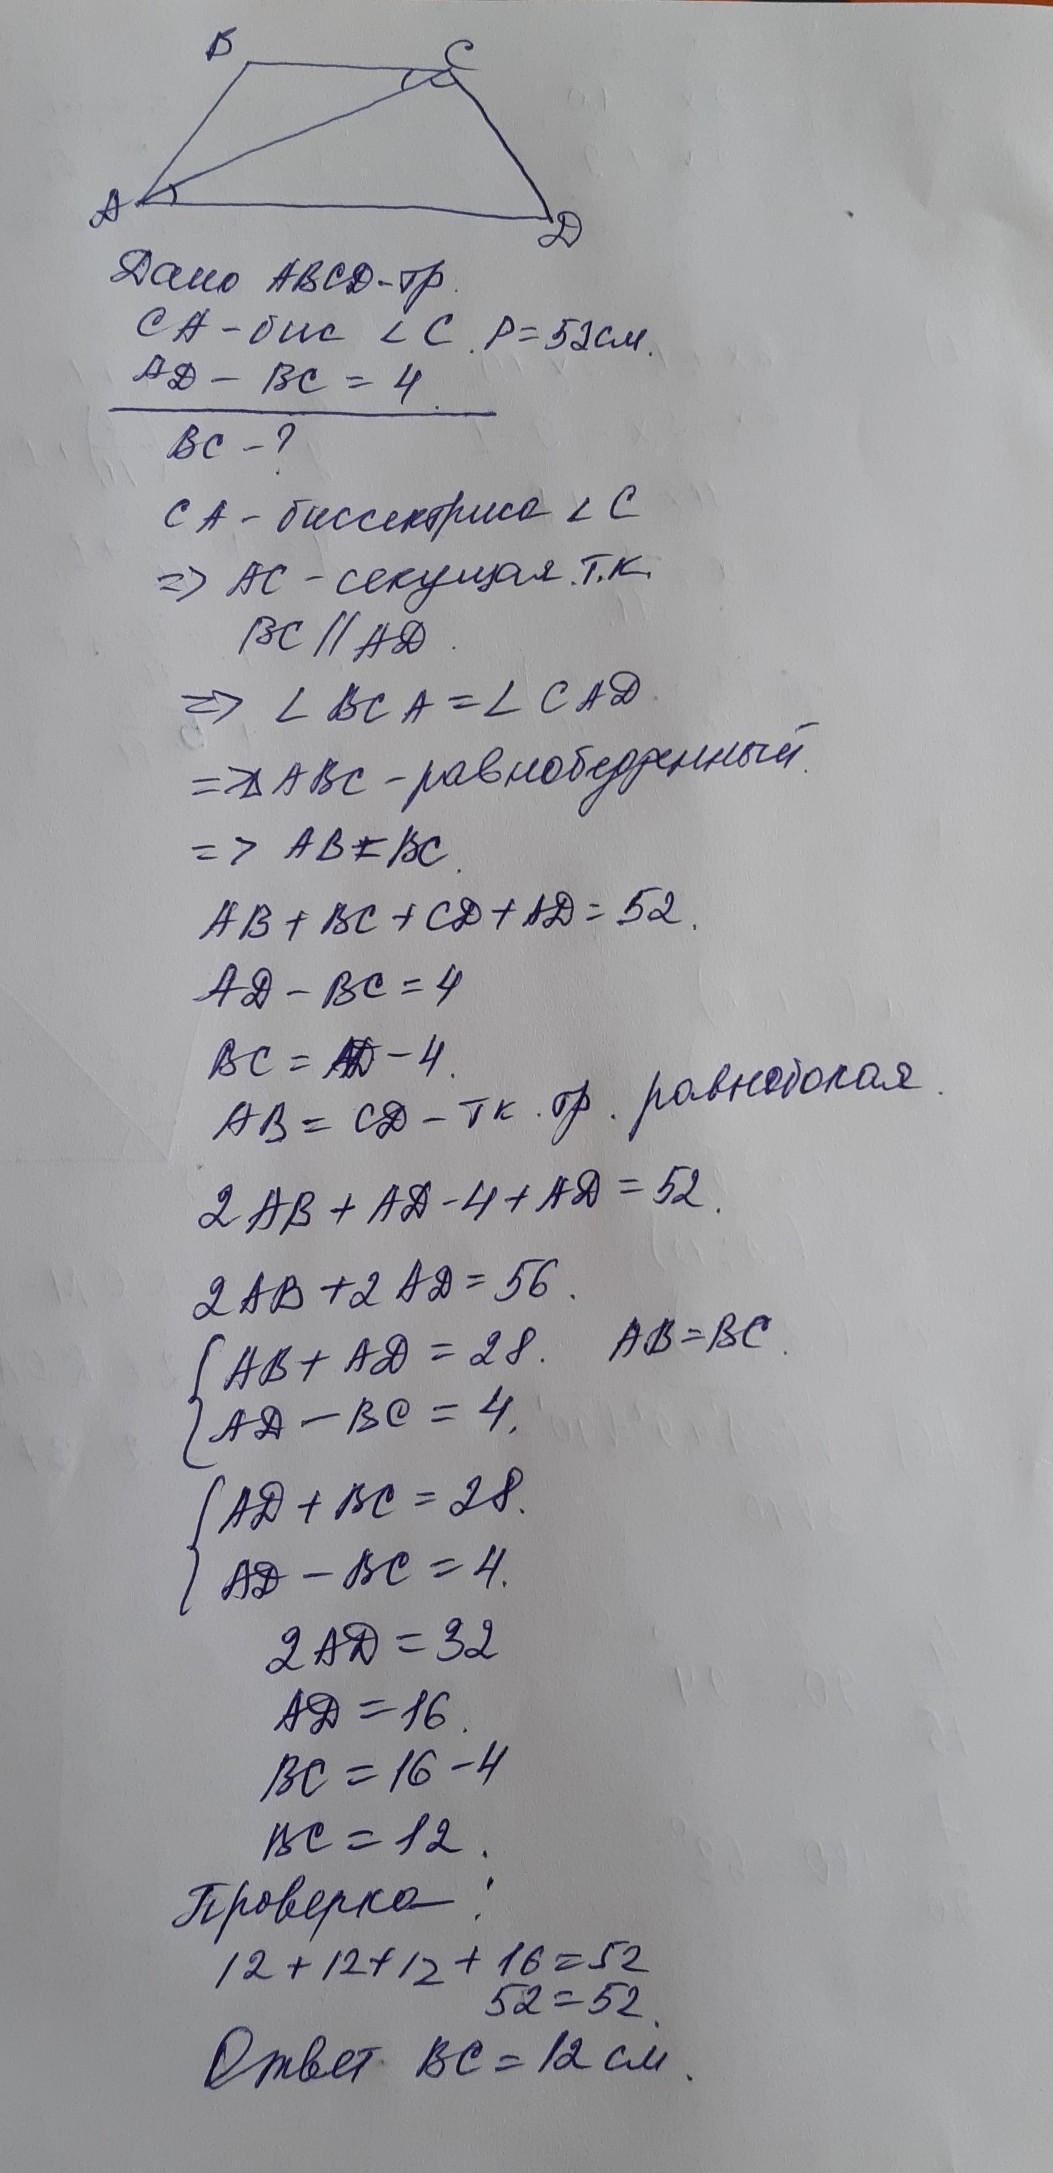 B
C
A
D
Дано ABCD-тр.
CA - бис ∠C. P=52см.
AD - BC = 4.
BC - ?
CA - биссектриса ∠C
=> AC - секущая т.к.
BC || AD.
=> ∠BCA = ∠CAD.
=> ΔABC - равнобедренный.
=> AB = BC.
AB + BC + CD + AD = 52.
AD - BC = 4
BC = AD - 4.
AB = CD - тк. тр. равнобокая.
2AB + AD - 4 + AD = 52.
2AB + 2AD = 56.
{ AB + AD = 28. AB = BC.
AD - BC = 4.
{ AD + BC = 28.
AD - BC = 4.
2AD = 32
AD = 16.
BC = 16 - 4
BC = 12.
Проверка:
12 + 12 + 12 + 16 = 52
52 = 52.
Ответ BC = 12 см.